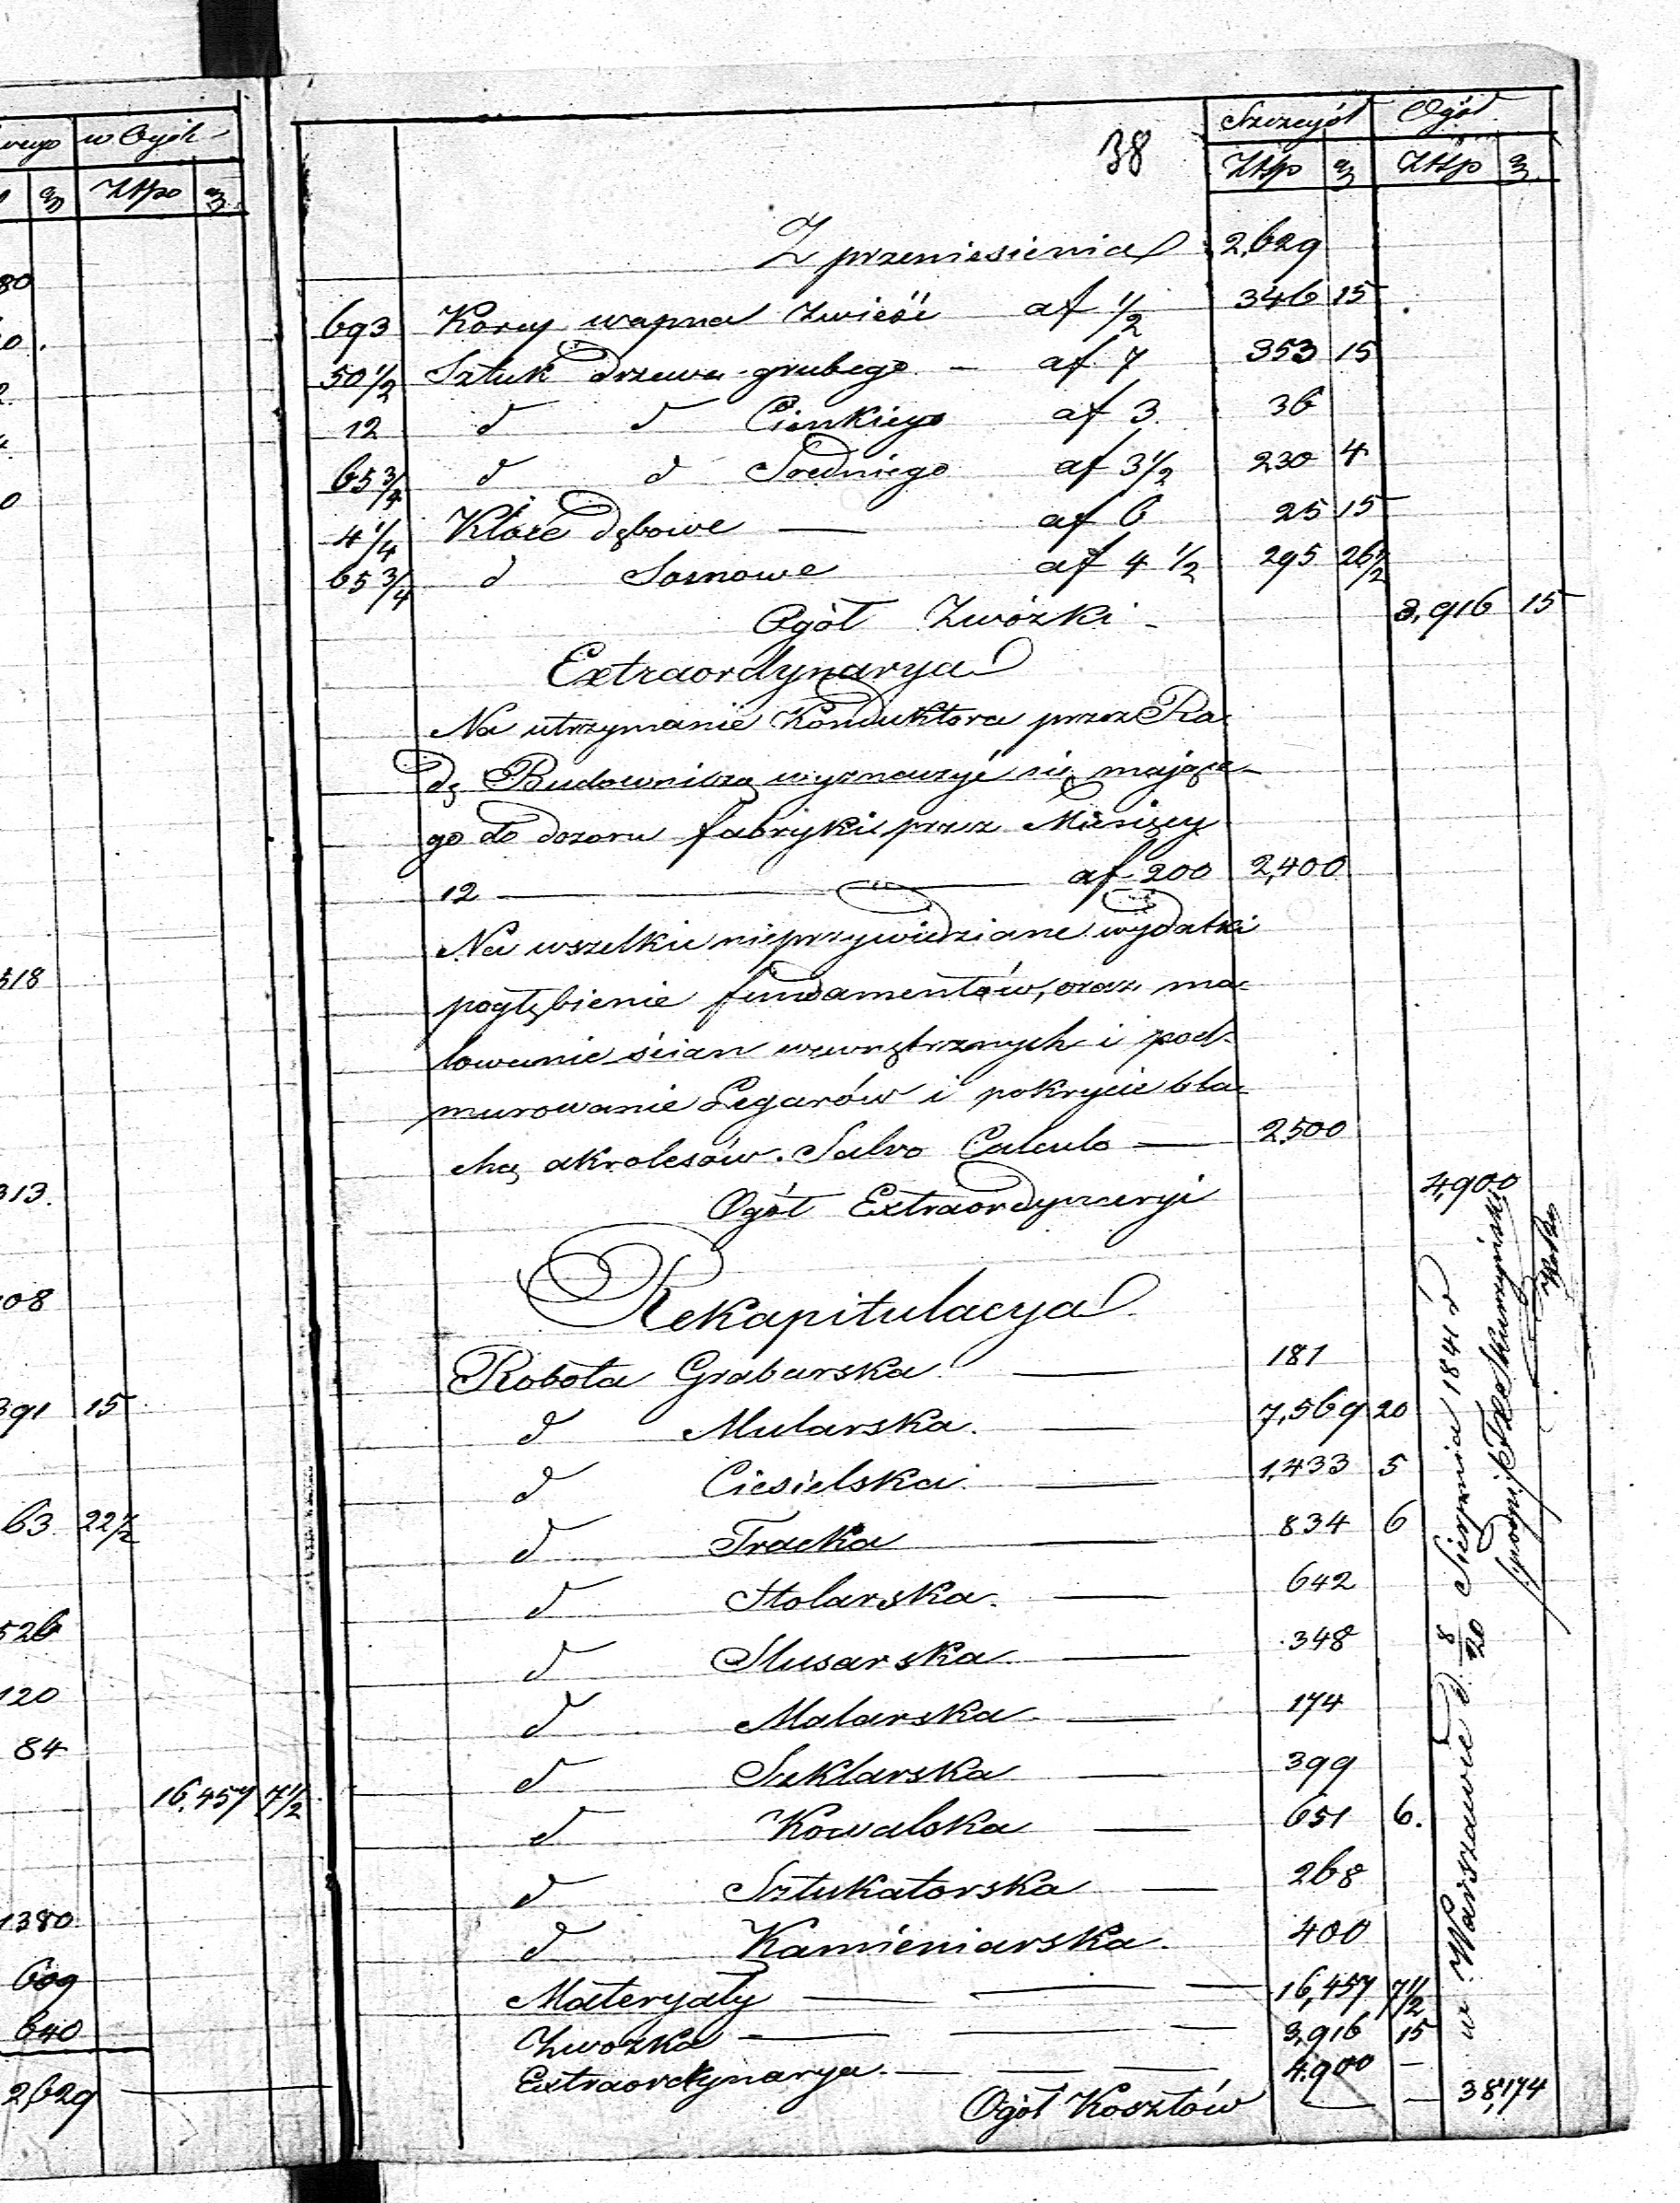 wego w Ogóle
gr Złtp gr
80
518
313.
08
391 15
63 22 1/2
526
120
84
16,457 7 1/2
1380
609
640
2629
38
Szczegół Ogół
Złtp gr Złtp gr
Z przeniesienia 2,629
693 Korcy wapna zwieść af 1/2 346 15
50 1/2 Sztuk drzewa grubego — af 7 353 15
12 d d Cienkiego af 3. 36
65 3/4 d d Sredniego af 3 1/2 230 4
4 1/4 Kloce dębowe — af 6 25 15
65 3/4 d Sosnowe af 4 1/2 295 26 1/2
Ogół Zwózki — 3,916 15
Extraordynarya
Na utrzymanie Konduktora przez Ra-
dę Budowniczą wyznaczyć się mające-
go do dozoru fabryki przez Miesięcy
12 — af 200 2,400
Na wszelkie nieprzywidziane wydatki
pogłębienie fundamentów, oraz ma-
lowanie ścian wewnętrznych i pod-
murowanie Legarów i pokrycie bla-
chą akrolesów. Salvo Calculo — 2,500
Ogół Extraordynaryi 4,900
Rekapitulacya
Robota Grabarska. — 181
d Mularska. — 7,569 20
d Ciesielska. — 1,433 5
d Tracka — 834 6
d Stolarska. — 642
d Slusarska — 348
d Malarska. — 174
d Szklarska — 399
d Kowalska — 651 6.
d Sztukatorska — 268
d Kamieniarska. 400
Materyały — — — 16,457 7 1/2
Zwozka — — — 3,916 15
Extraordynarya. — — — 4,900 —
Ogół Kosztów — — 38,174
w Warszawie d. 8/20 Sierpnia 1841 r